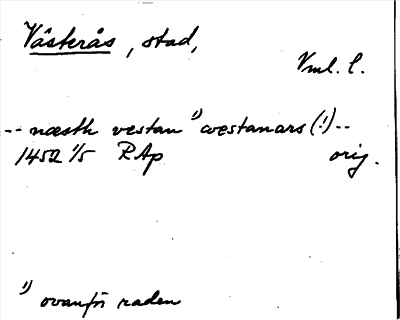 Västerås, stad,
Vml. l.
-- næsth vestan ¹) wæstanars (!) --
1452 1/5 RAp orig.
¹) ovanför raden